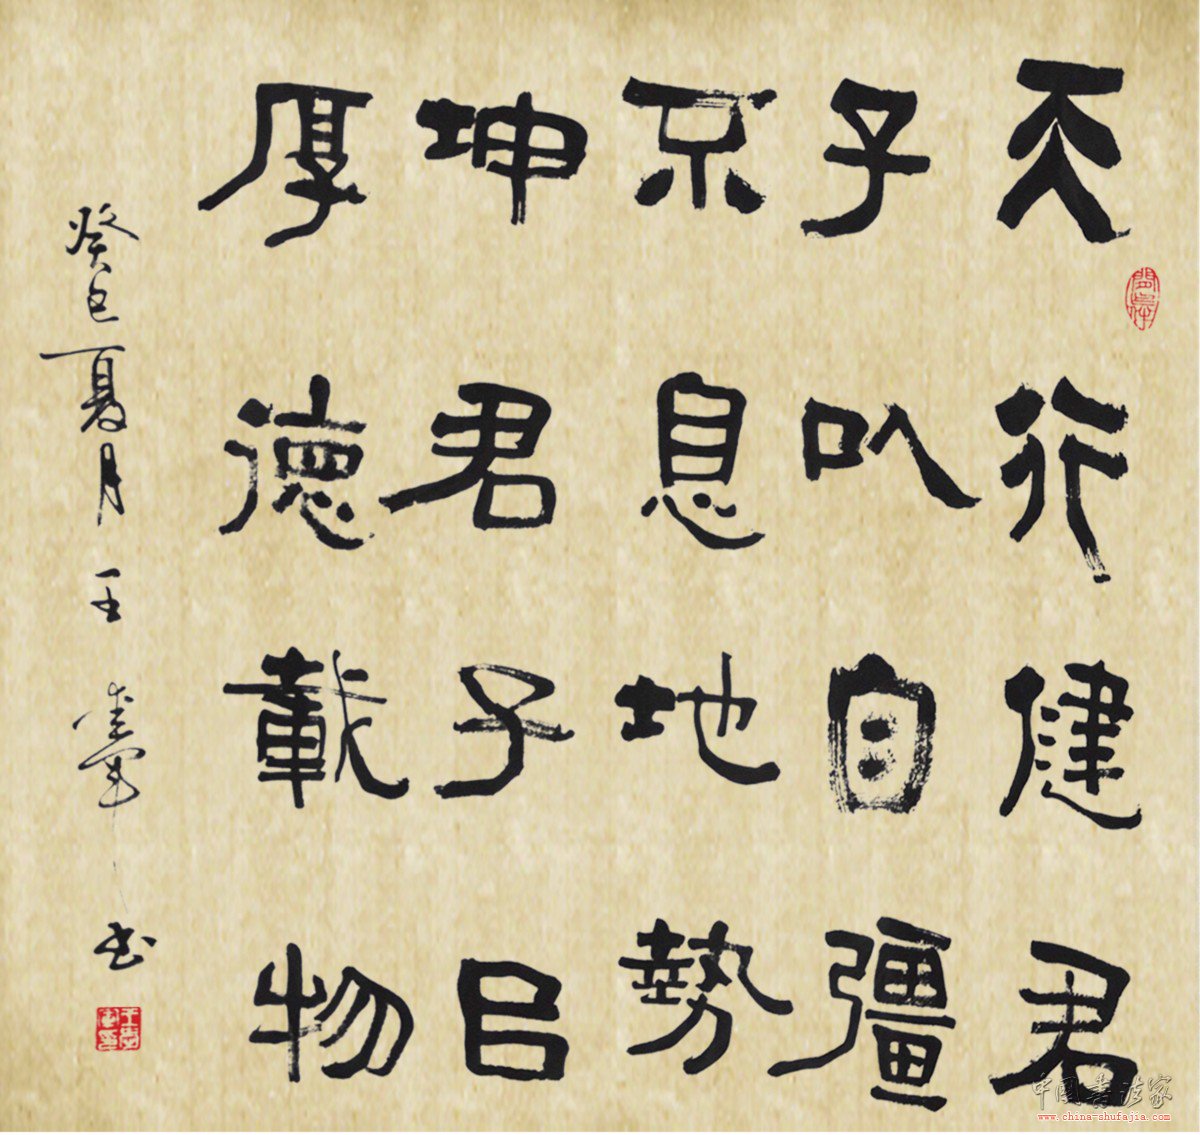 天行健君
子以自彊
不息地勢
坤君子㠯
厚德載物
癸巳夏月王 書
中国书法家
www.china-shufajia.com